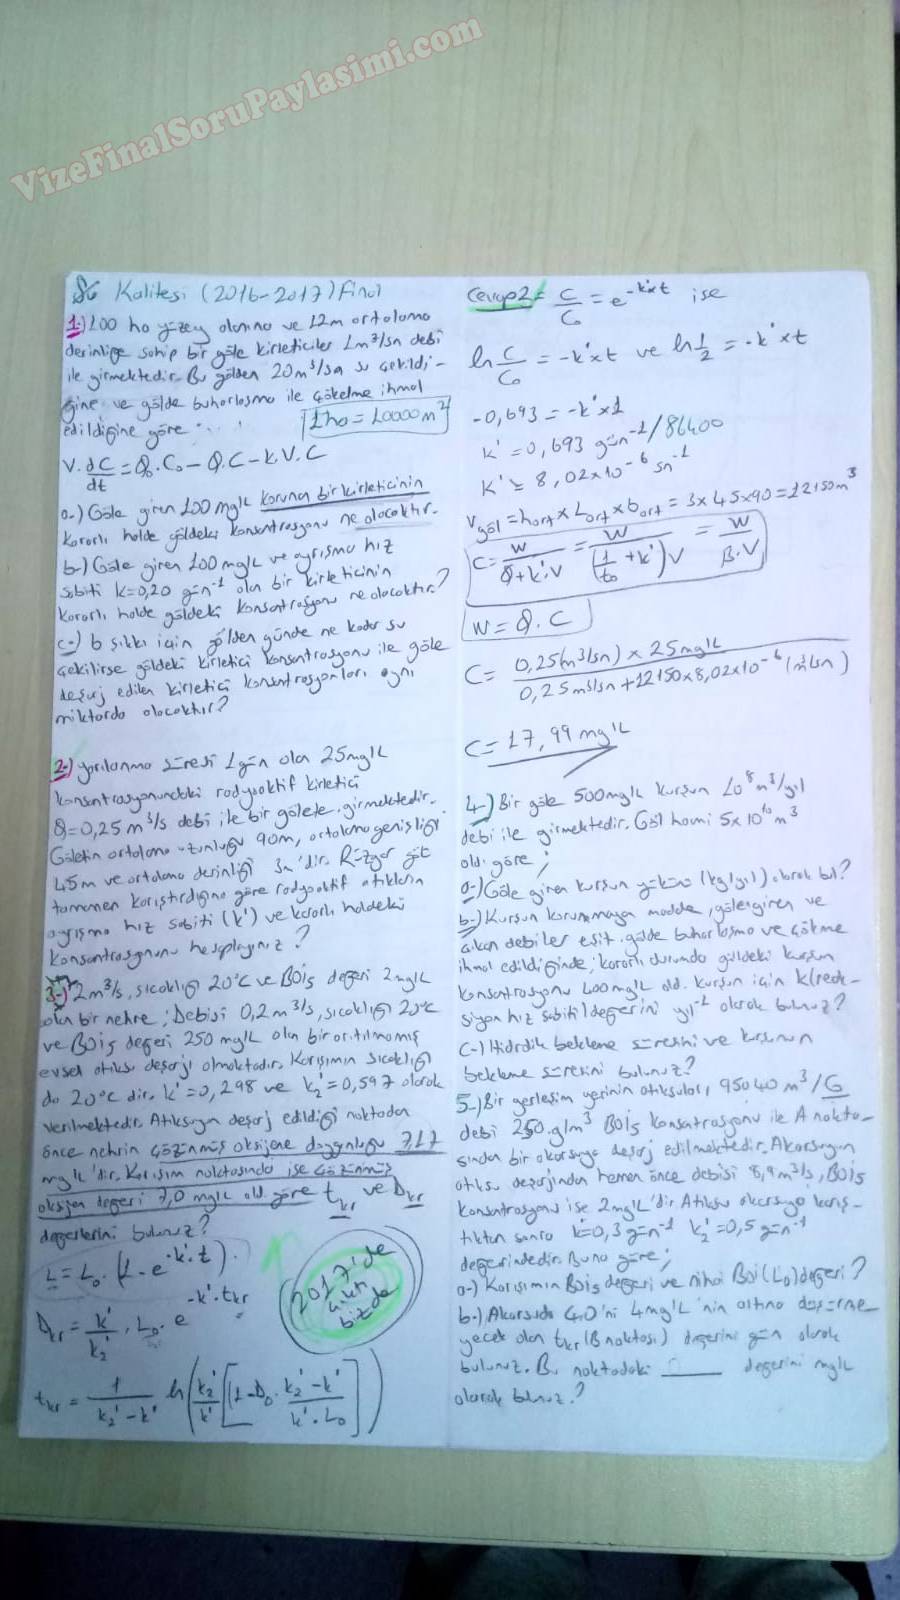 VizeFinalSoruPaylasimi.com
Su Kalitesi (2016-2017) Final
1-) 100 ha yüzey alanına ve 12m ortalama
derinliğe sahip bir göle kirleticiler 1m³/sn debi
ile girmektedir. Bu gölden 20m³/sn su çekildi-
ğine ve gölde buharlaşma ile çökelme ihmal
edildiğine göre . . . .
1ha = 10000m²
V. dC/dt = Q₀. C₀ - Q.C - k.V.C
a-) Göle giren 100 mg/L korunan bir kirleticinin
kararlı halde göldeki konsantrasyonu ne olacaktır.
b-) Göle giren 100 mg/L ve ayrışma hız
sabiti k=0,20 gün⁻¹ olan bir kirleticinin
kararlı halde göldeki konsantrasyonu ne olacaktır?
c-) b şıkkı için gölden günde ne kadar su
çekilirse göldeki kirletici konsantrasyonu ile göle
deşarj edilen kirletici konsantrasyonları aynı
miktarda olacaktır?
2-) yarılanma süresi 1gün olan 25mg/L
konsantrasyonundaki radyoaktif kirletici
Q=0,25 m³/s debi ile bir gölete girmektedir.
Göletin ortalama uzunluğu 90m, ortalama genişliği
45m ve ortalama derinliği 3m'dir. Rüzgar göl
tamamen karıştırdığına göre radyoaktif atıkların
ayrışma hız sabiti (k') ve kararlı haldeki
konsantrasyonunu hesaplayınız?
3-) 2m³/s, sıcaklığı 20°C ve BOİ₅ değeri 2mg/L
olan bir nehre; Debisi 0,2m³/s, sıcaklığı 20°C
ve BOİ₅ değeri 250 mg/L olan bir arıtılmamış
evsel atıksu deşarjı olmaktadır. Karışımın sıcaklığı
da 20°C dir. k'=0,298 ve k₂'=0,597 olarak
verilmektedir. Atıksuyun deşarj edildiği noktadan
önce nehrin çözünmüş oksijene doygunluğu 9,17
mg/L'dir. Karışım noktasında ise çözünmüş
oksijen değeri 7,0 mg/L old. göre tkr ve Dkr
değerlerini bulunuz?
L = L₀ . (1 - e^-k'.t)
Dkr = k'/k₂' . L₀ . e^-k'.tkr
2017'de
çıkan
bizde
tkr = 1/(k₂'-k') ln(k₂'/k' [1-D₀. (k₂'-k')/(k'.L₀)])
Cevap 2 = C/C₀ = e^-k'xt ise
ln C/C₀ = -k'xt ve ln 1/2 = -k'xt
-0,693 = -k'x1
k' = 0,693 gün⁻¹/86400
k' = 8,02x10⁻⁶ sn⁻¹
Vgöl = hort x Lort x bort = 3x45x90 = 12150m³
C = W/(Q+k'.V) = W/((1/t₀ + k')V) = W/(β.V)
W = Q.C
C = 0,25(m³/sn) x 25mg/L / 0,25m³/sn + 12150x8,02x10⁻⁶ (m³/sn)
C = 17,99 mg/L
4-) Bir göle 500mg/L kurşun 10⁸ m³/yıl
debi ile girmektedir. Göl hacmi 5x10¹⁰ m³
old. göre;
a-) Göle giren kurşun yükünü (kg/yıl) olarak bul?
b-) Kurşun korunmayan madde, göle giren ve
çıkan debiler eşit, gölde buharlaşma ve çökme
ihmal edildiğinde; kararlı durumda göldeki kurşun
konsantrasyonu 400mg/L old. kurşun için k(reak-
siyon hız sabiti) değerini yıl⁻¹ olarak bulunuz?
c-) Hidrolik bekleme süresini ve kurşunun
bekleme süresini bulunuz?
5-) Bir yerleşim yerinin atıksuları, 95040 m³/G
debi 250 g/m³ BOİ₅ konsantrasyonu ile A nokta-
sından bir akarsuya deşarj edilmektedir. Akarsuyun
atıksu deşarjından hemen önce debisi 8,9m³/s, BOİ₅
konsantrasyonu ise 2mg/L'dir. Atıksu akarsuya karış-
tıktan sonra k'=0,3gün⁻¹ k₂'=0,5gün⁻¹
değerindedir. Buna göre;
a-) Karışımın BOİ₅ değeri ve nihai BOİ (L₀) değeri?
b-) Akarsuda ÇO'ni 4mg/L'nin altına düşürme
yecek olan tkr (B noktası) değerini gün olarak
bulunuz. B noktadaki ____ değerini mg/L
olarak bulnuz.?